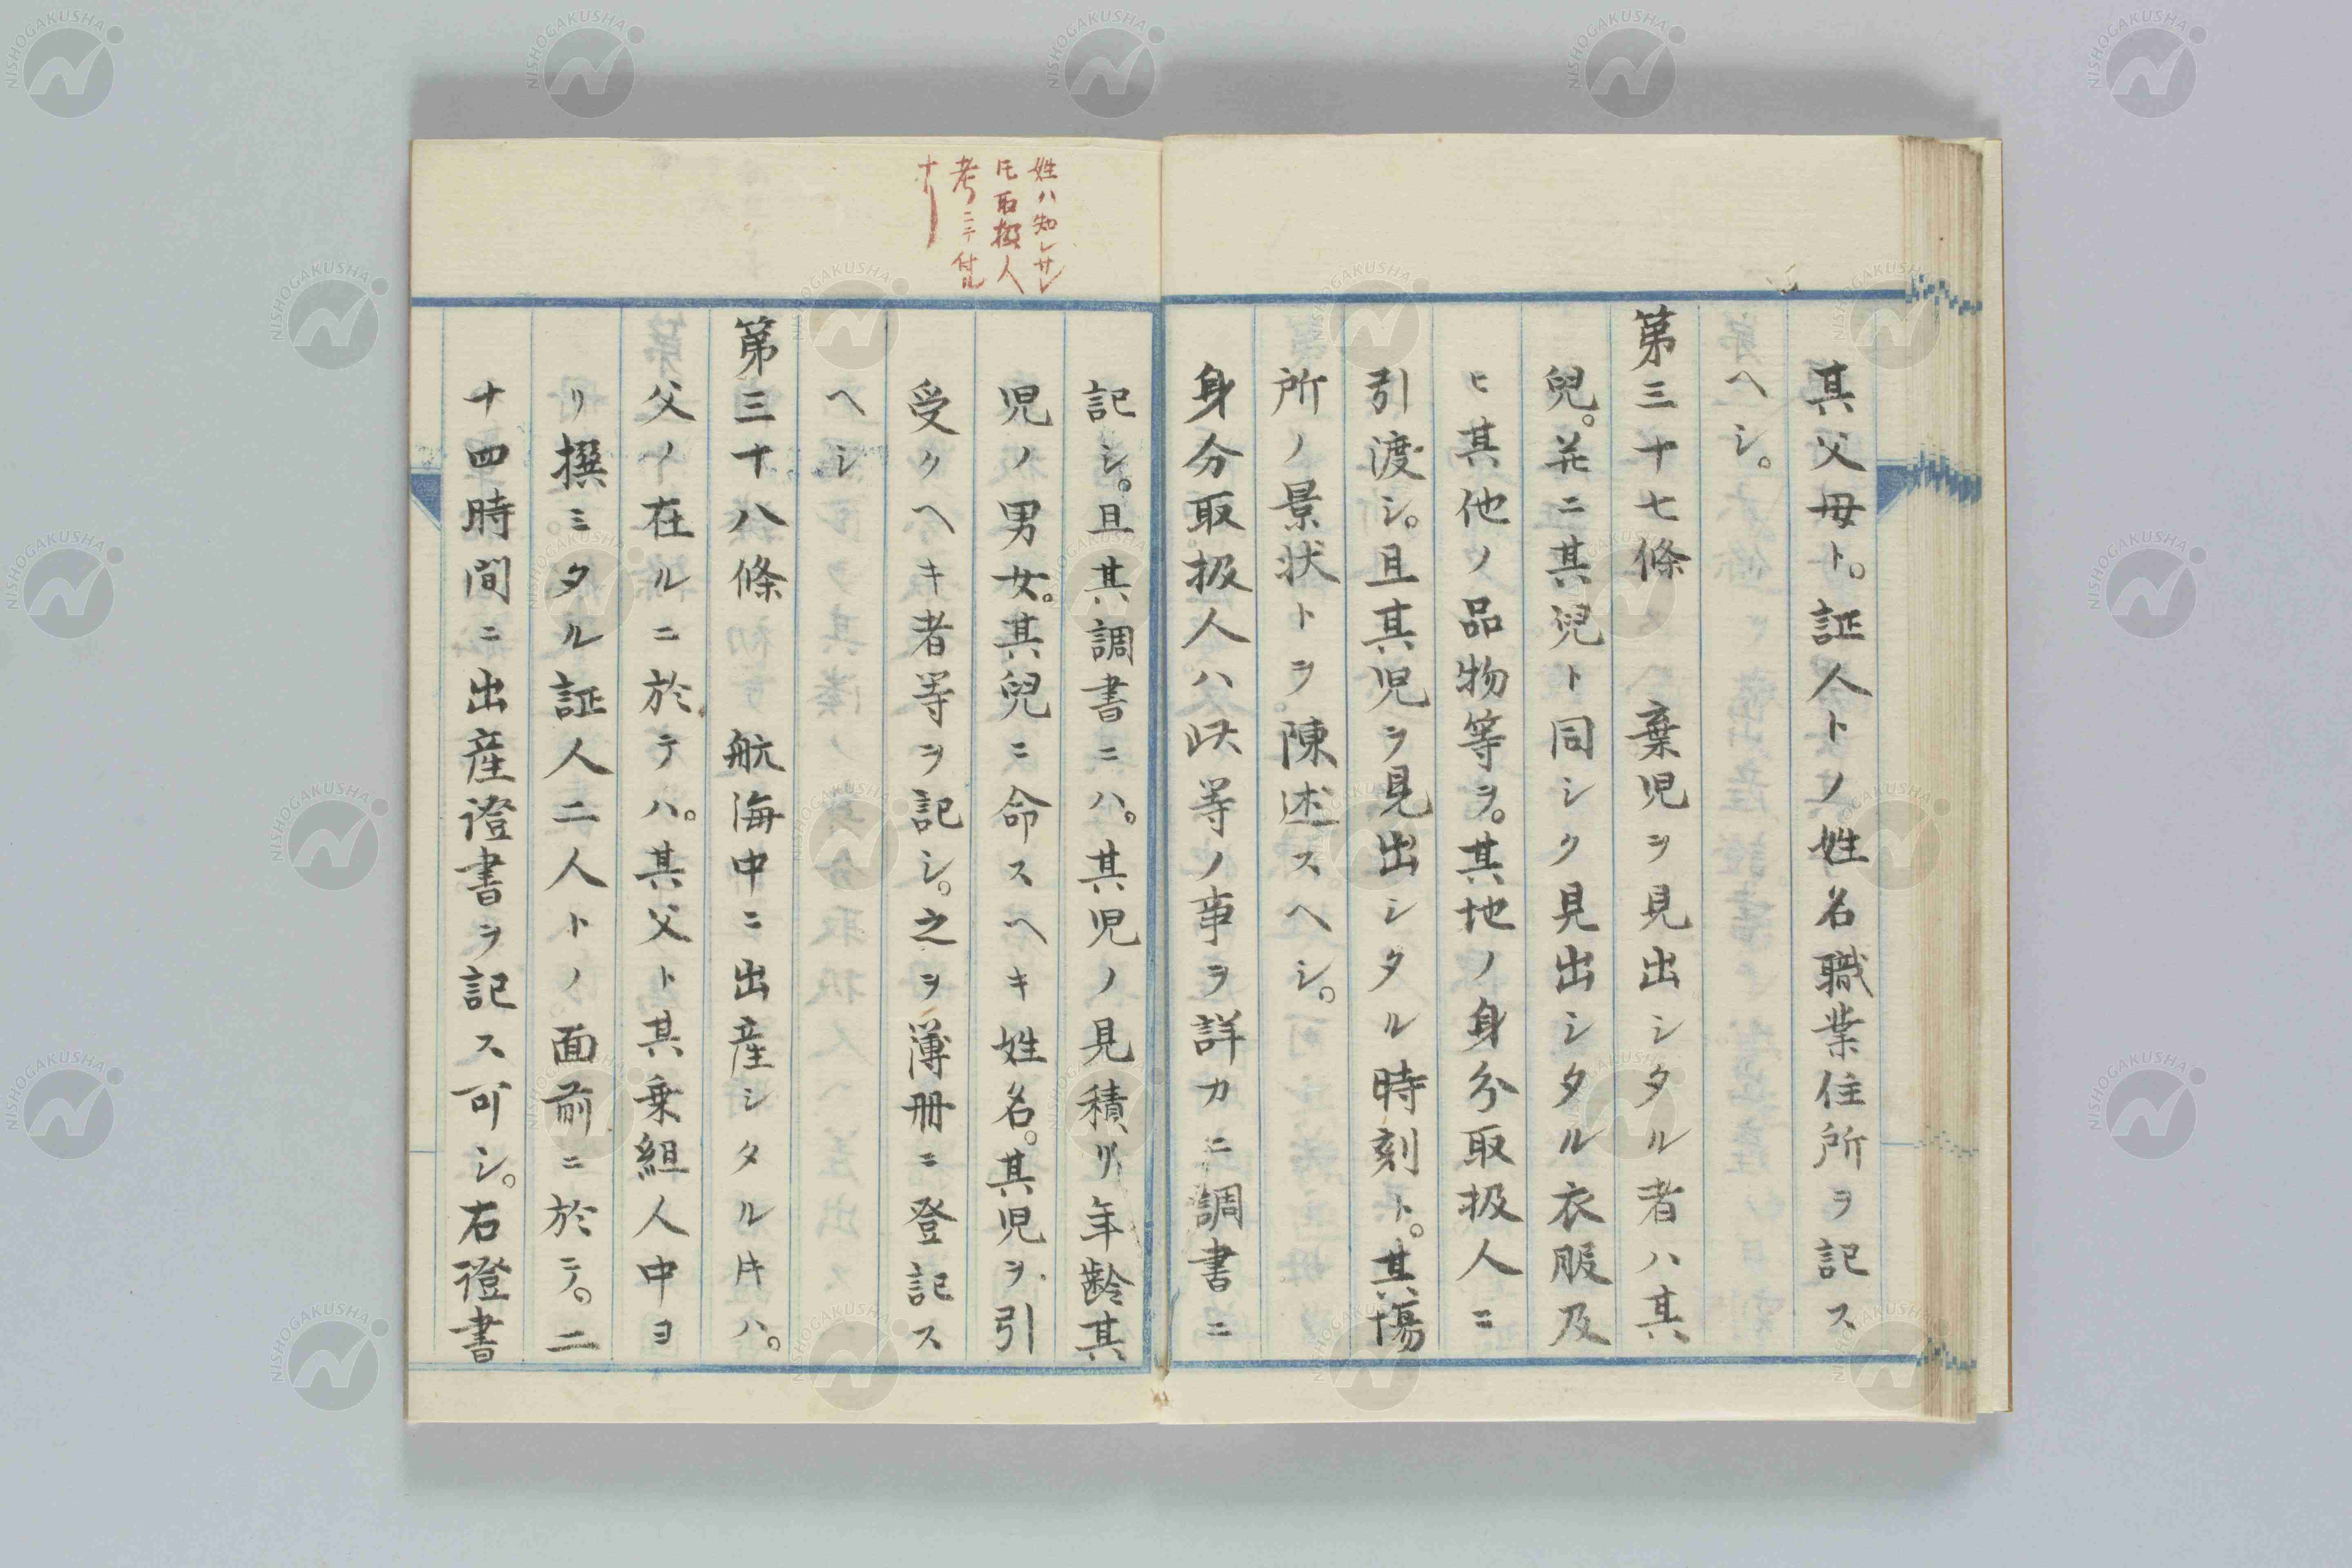 其父母ト。証人トノ姓名職業住所ヲ記ス
ヘシ。
第三十七條　棄児ヲ見出シタル者ハ其
兒。並ニ其兒ト同シク見出シタル衣服及
ヒ其他ノ品物等ヲ。其地ノ身分取扱人ニ
引渡シ。且其児ヲ見出シタル時刻ト。其場
所ノ景状トヲ陳述スヘシ。
身分取扱人ハ此等ノ事ヲ詳カニ調書ニ
姓ハ知レサレ
𪜈取扱人
考ニテ付ル
ナリ
記シ。且其調書ニハ。其児ノ見積リ年齢其
児ノ男女。其兒ニ命スヘキ姓名。其児ヲ引
受クヘキ者等ヲ記シ。之ヲ簿冊ニ登記ス
ヘシ
第三十八條　航海中ニ出産シタル𪜈ハ。
父ノ在ルニ於テハ。其父ト其乗組人中ヨ
リ撰ミタル証人二人トノ面前ニ於テ。二
十四時間ニ出産證書ヲ記ス可シ。右證書
NISHOGAKUSHA